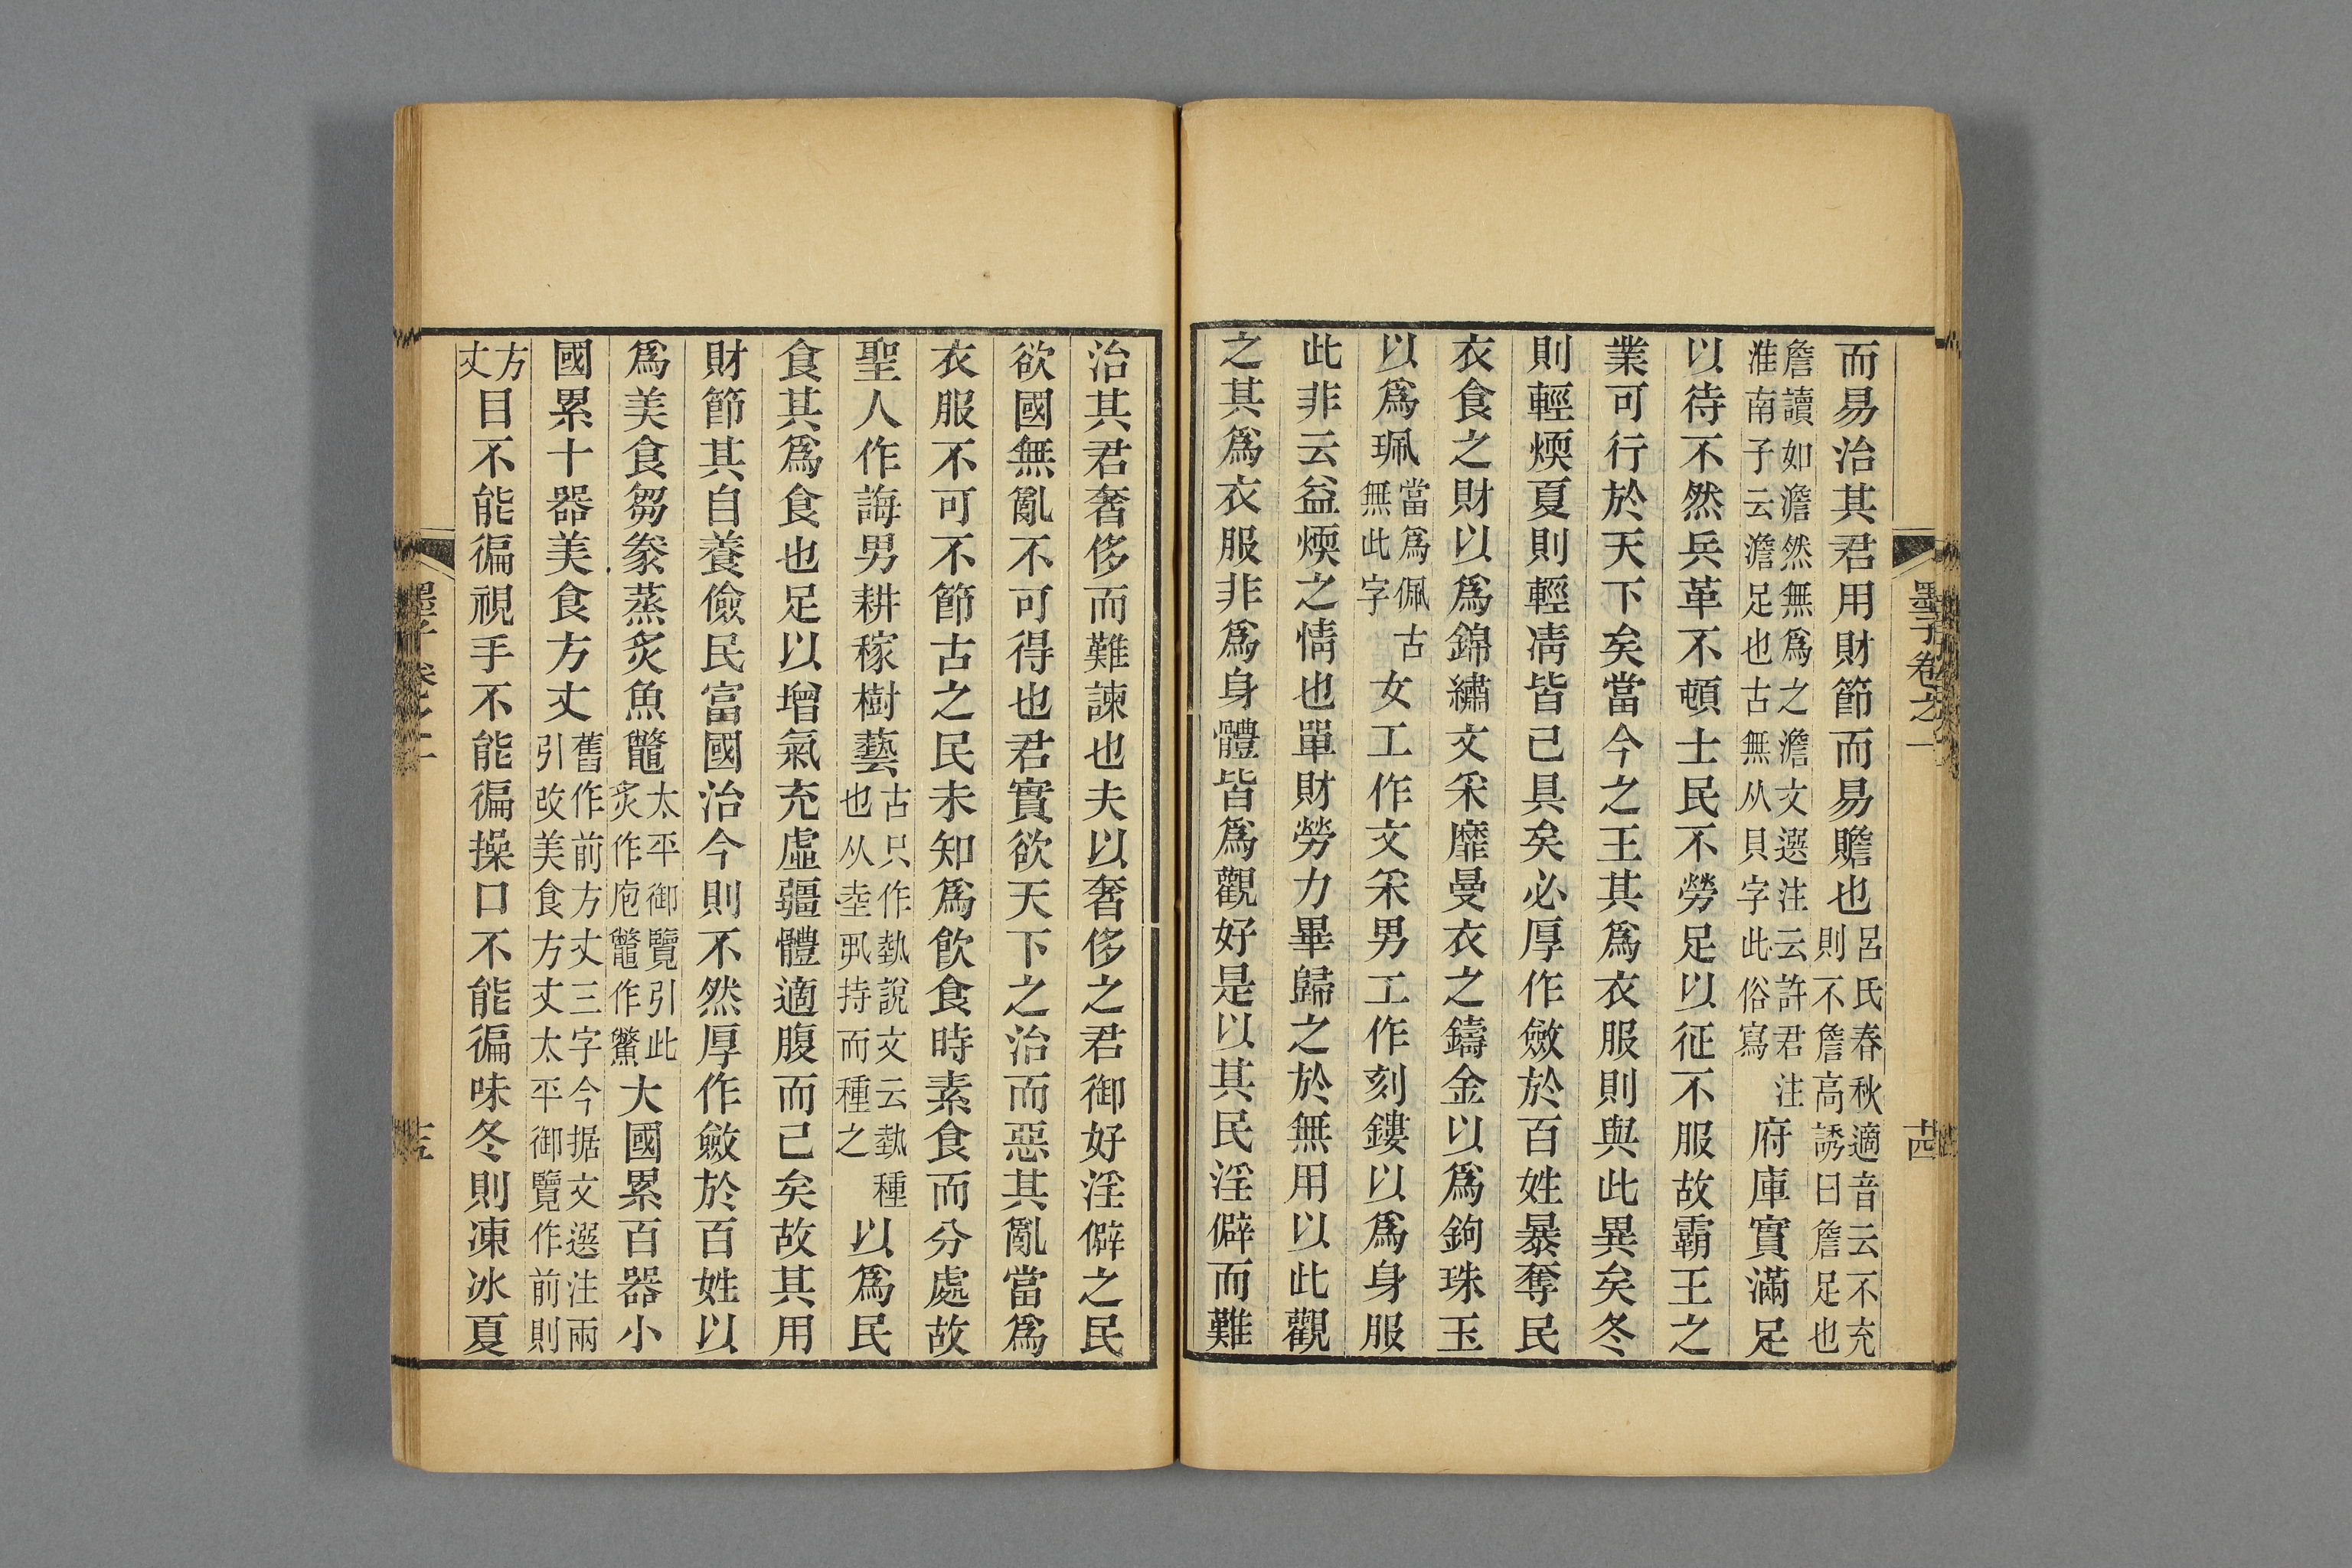 墨子卷之一
而易治其君用財節而易贍也呂氏春秋適音云不充則不詹高誘曰詹足也
詹讀如澹然無爲之澹文選注云許君注淮南子云澹足也古無从貝字此俗寫府庫實滿足
以待不然兵革不頓士民不勞足以征不服故霸王之
業可行於天下矣當今之王其爲衣服則與此異矣冬
則輕煗夏則輕凊皆已具矣必厚作斂於百姓暴奪民
衣食之財以爲錦繡文采靡曼衣之鑄金以爲鉤珠玉
以爲珮當爲佩古無此字女工作文采男工作刻鏤以爲身服
此非云益煗之情也單財勞力畢歸之於無用以此觀
之其爲衣服非爲身體皆爲觀好是以其民淫僻而難
治其君奢侈而難諫也夫以奢侈之君御好淫僻之民
欲國無亂不可得也君實欲天下之治而惡其亂當爲
衣服不可不節古之民未知爲飮食時素食而分處故
聖人作誨男耕稼樹藝古只作埶說文云埶種也从坴丮持而種之以爲民
食其爲食也足以增氣充虛彊體適腹而已矣故其用
財節其自養儉民富國治今則不然厚作斂於百姓以
爲美食芻豢蒸炙魚鼈太平御覽引此炙作庖鼈作鱉大國累百器小
國累十器美食方丈舊作前方丈三字今据文選注兩引改美食方丈太平御覽作前則
方丈目不能徧視手不能徧操口不能徧味冬則凍冰夏